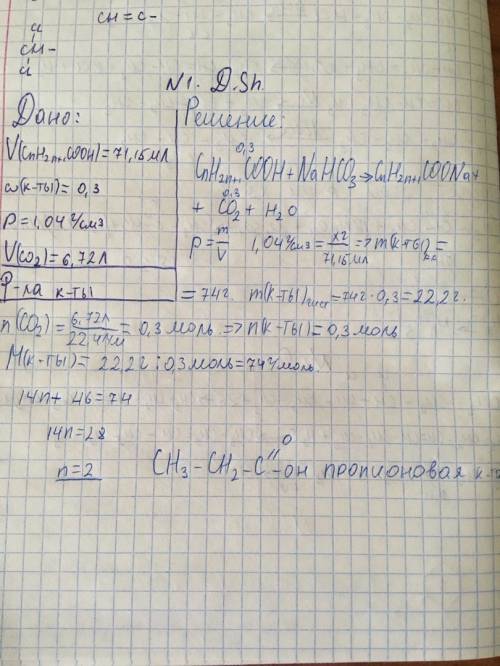 CH = C -
Cl
CH-
Cl
N1. D.Sh.
Дано:
V(CnH2n+1COOH) = 71,15 мл
ω(к-ты) = 0,3
ρ = 1,04 г/см3
V(CO2) = 6,72 л
Ф-ла к-ты
Решение:
0,3
CnH2n+1COOH + NaHCO3 → CnH2n+1COONa +
0,3
+ CO2 + H2O
ρ = m/V 1,04 г/см3 = xг/71,15 мл => m(к-ты)р-ра =
= 74 г. m(к-ты)чист = 74 г · 0,3 = 22,2 г.
n(CO2) = 6,72 л/22,4 л/м = 0,3 моль => n(к-ты) = 0,3 моль
M(к-ты) = 22,2 г : 0,3 моль = 74 г/моль.
14n + 46 = 74
14n = 28
n = 2
O
CH3 - CH2 - C - OH пропионовая к-